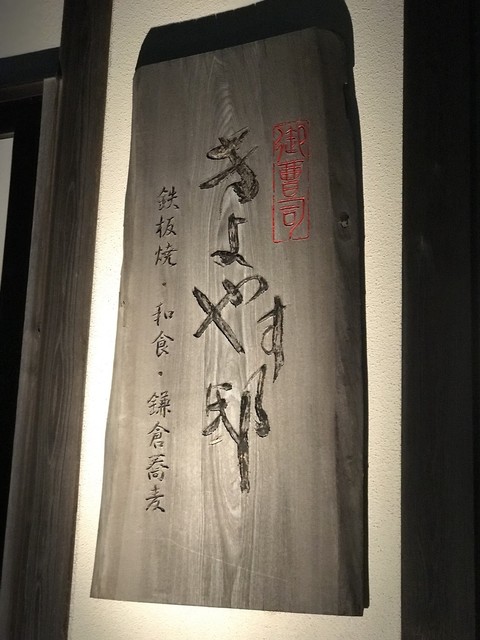 御曹司
きよやす邸
鉄板焼・和食・鎌倉蕎麦